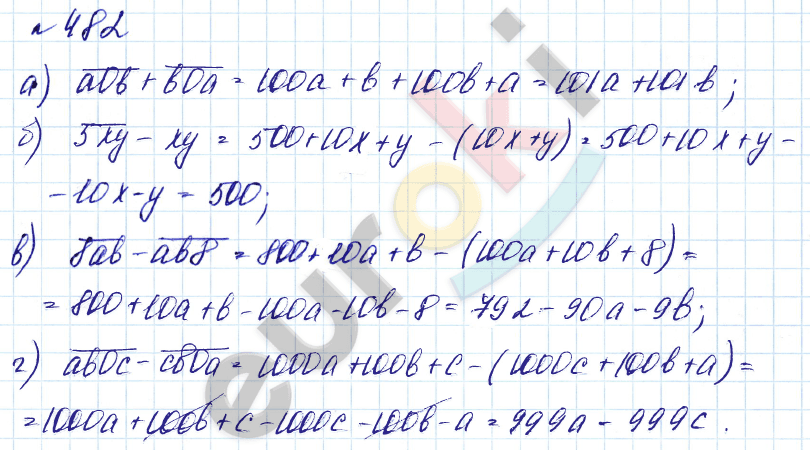 №482
а) a0b + b0a = 100a + b + 100b + a = 101a + 101b;
б) 5xy - xy = 500 + 10x + y - (10x + y) = 500 + 10x + y -
- 10x - y = 500;
в) 8ab - ab8 = 800 + 10a + b - (100a + 10b + 8) =
= 800 + 10a + b - 100a - 10b - 8 = 792 - 90a - 9b;
г) ab0c - cb0a = 1000a + 100b + c - (1000c + 100b + a) =
= 1000a + 100b + c - 1000c - 100b - a = 999a - 999c.
euroki